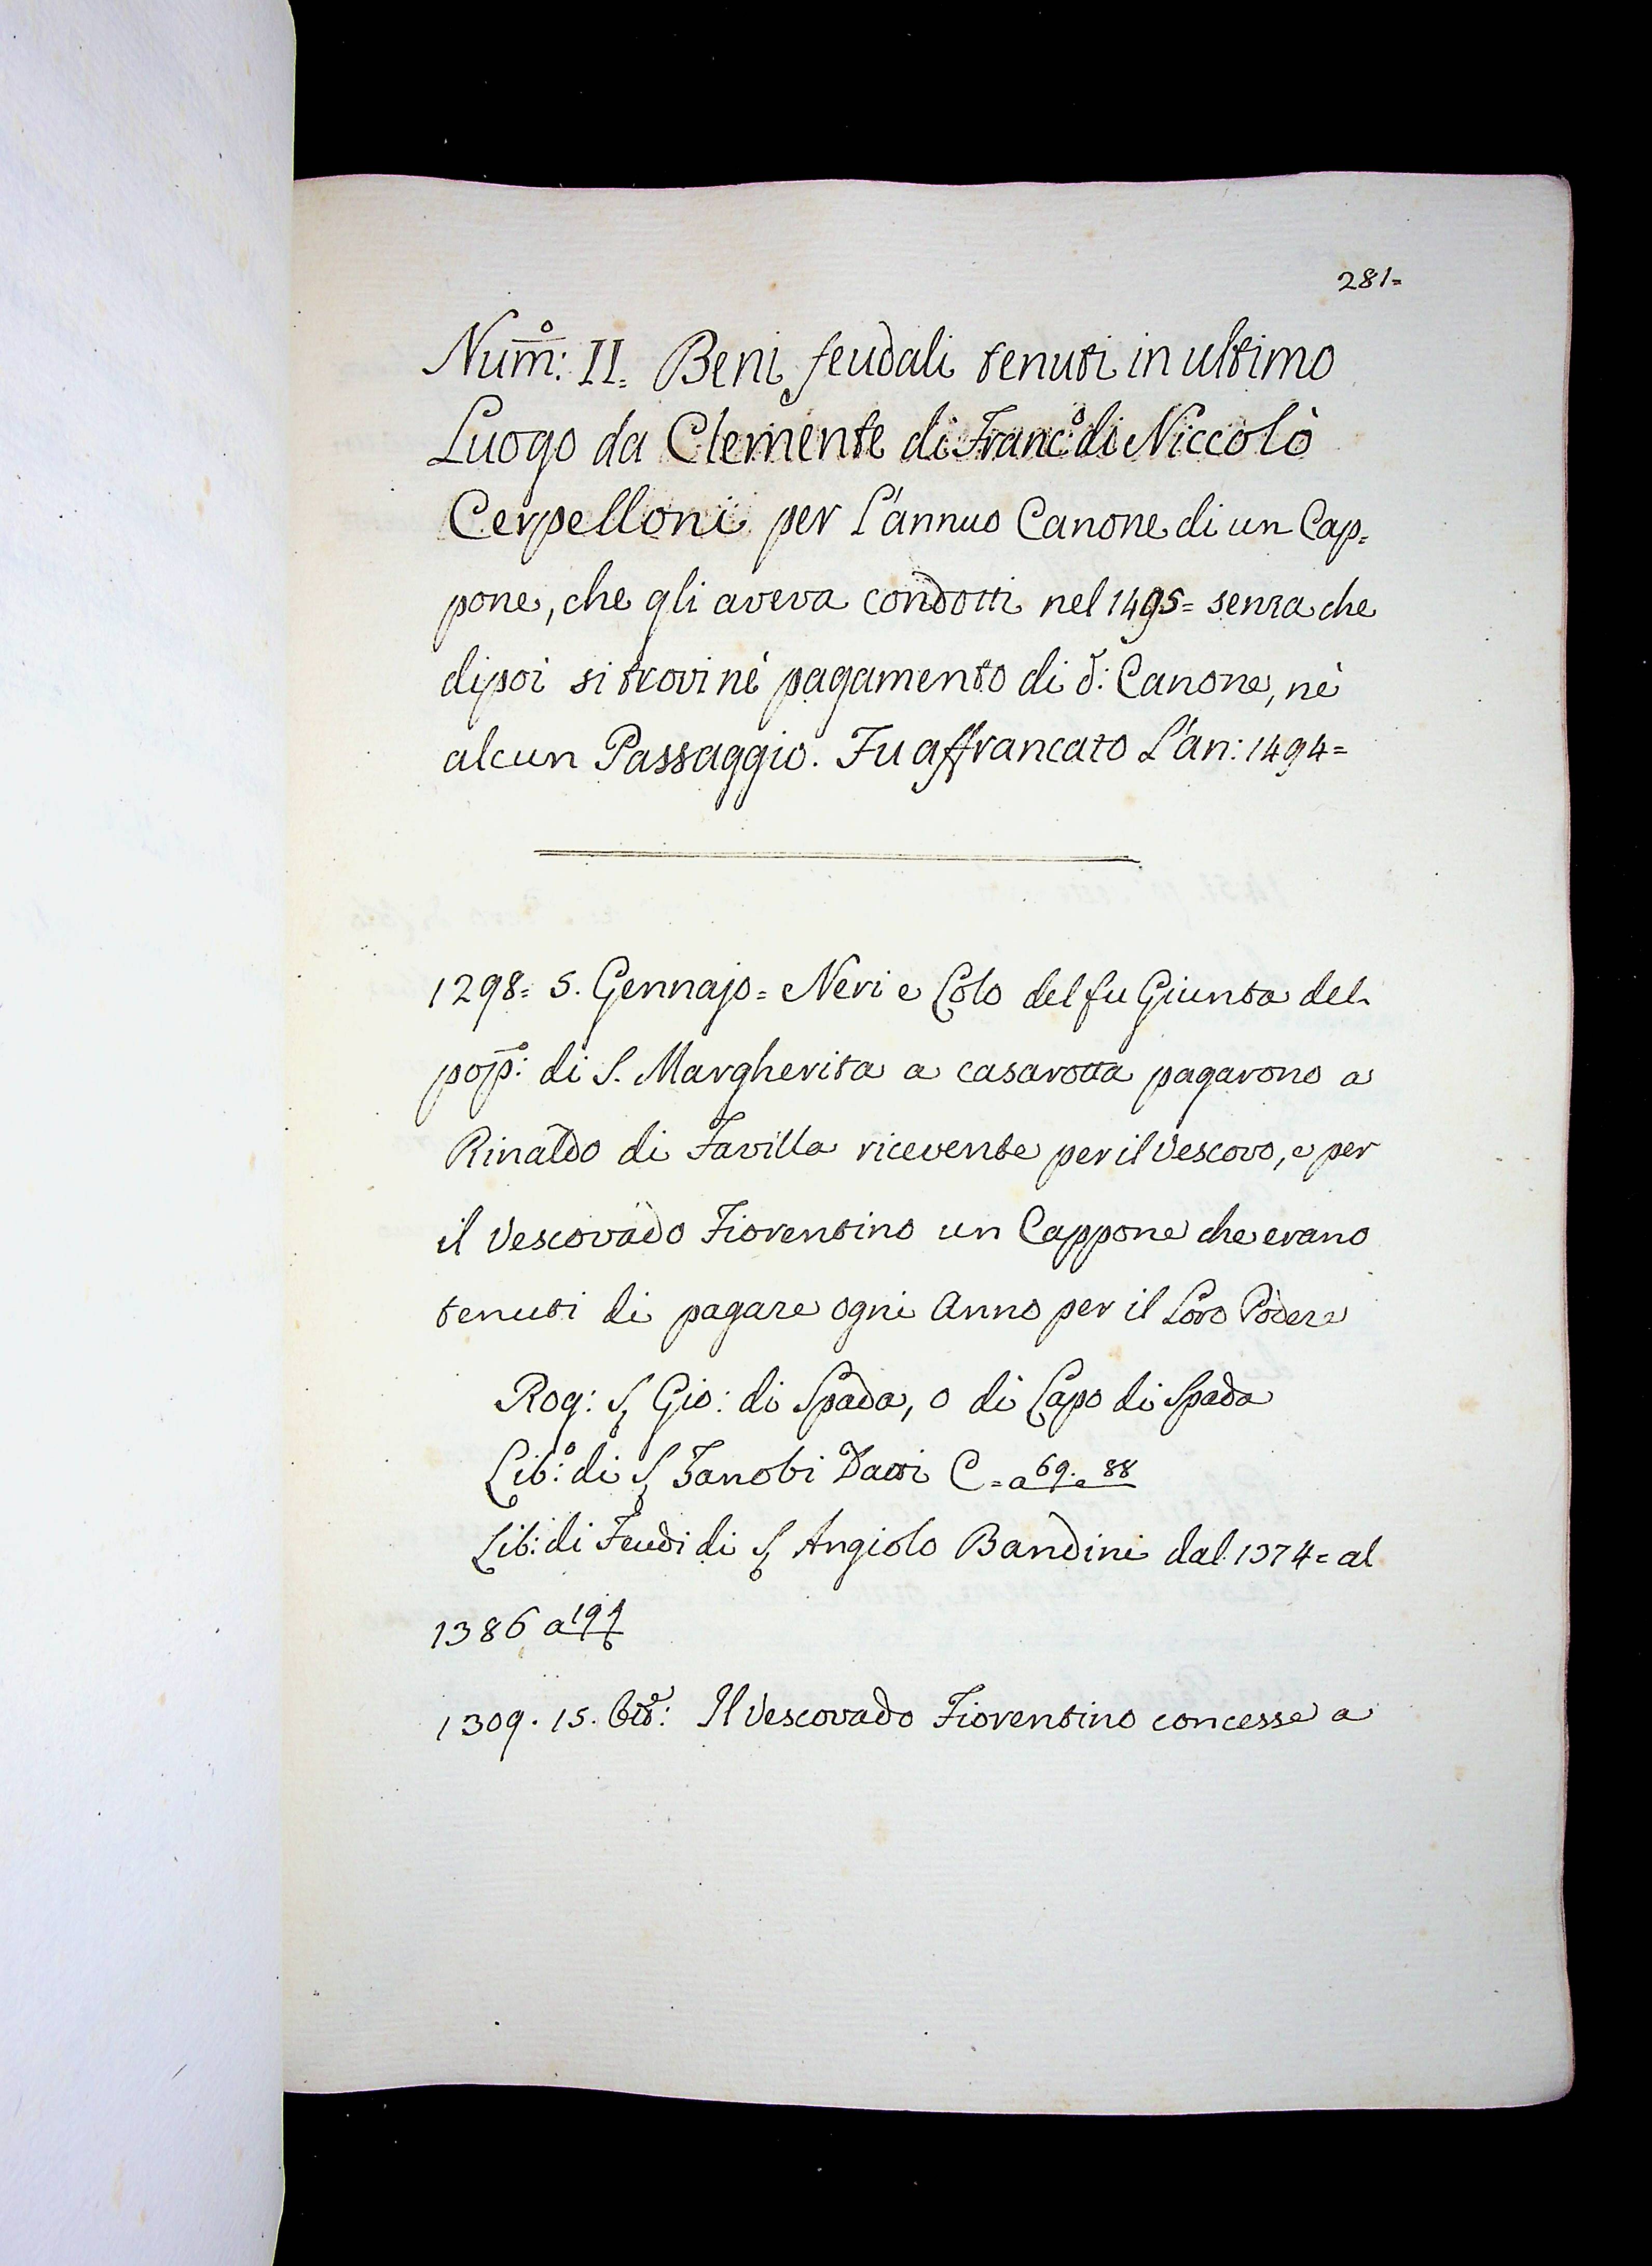 281=
Num̅o: II. Beni feudali tenuti in ultimo
Luogo da Clemente di Franc.o di Niccolò
Cerpelloni per L'annuo Canone di un Cap=
pone, che gli aveva condotti nel 1495= senza che
dipoi si trovi nè pagamento di d: Canone, nè
alcun Passaggio. Fu affrancato L'an: 1494=
1298= 5. Gennajo= Neri e Colo del fu Giunta del
pop̅o: di S. Margherita a casarotta pagarono a
Rinaldo di Favilla ricevente per il Vescovo, e per
il Vescovado Fiorentino un Cappone che erano
tenuti di pagare ogni Anno per il Loro Podere
Rog: S. Gio: di Spada, o di Capo di Spada
Lib:o di S. Zanobi C= a 69. e 88
Lib: di Feudi di S. Angiolo Bandini dal 1374= al
1386 a 194
1309. 15. Il Vescovado Fiorentino concesse a